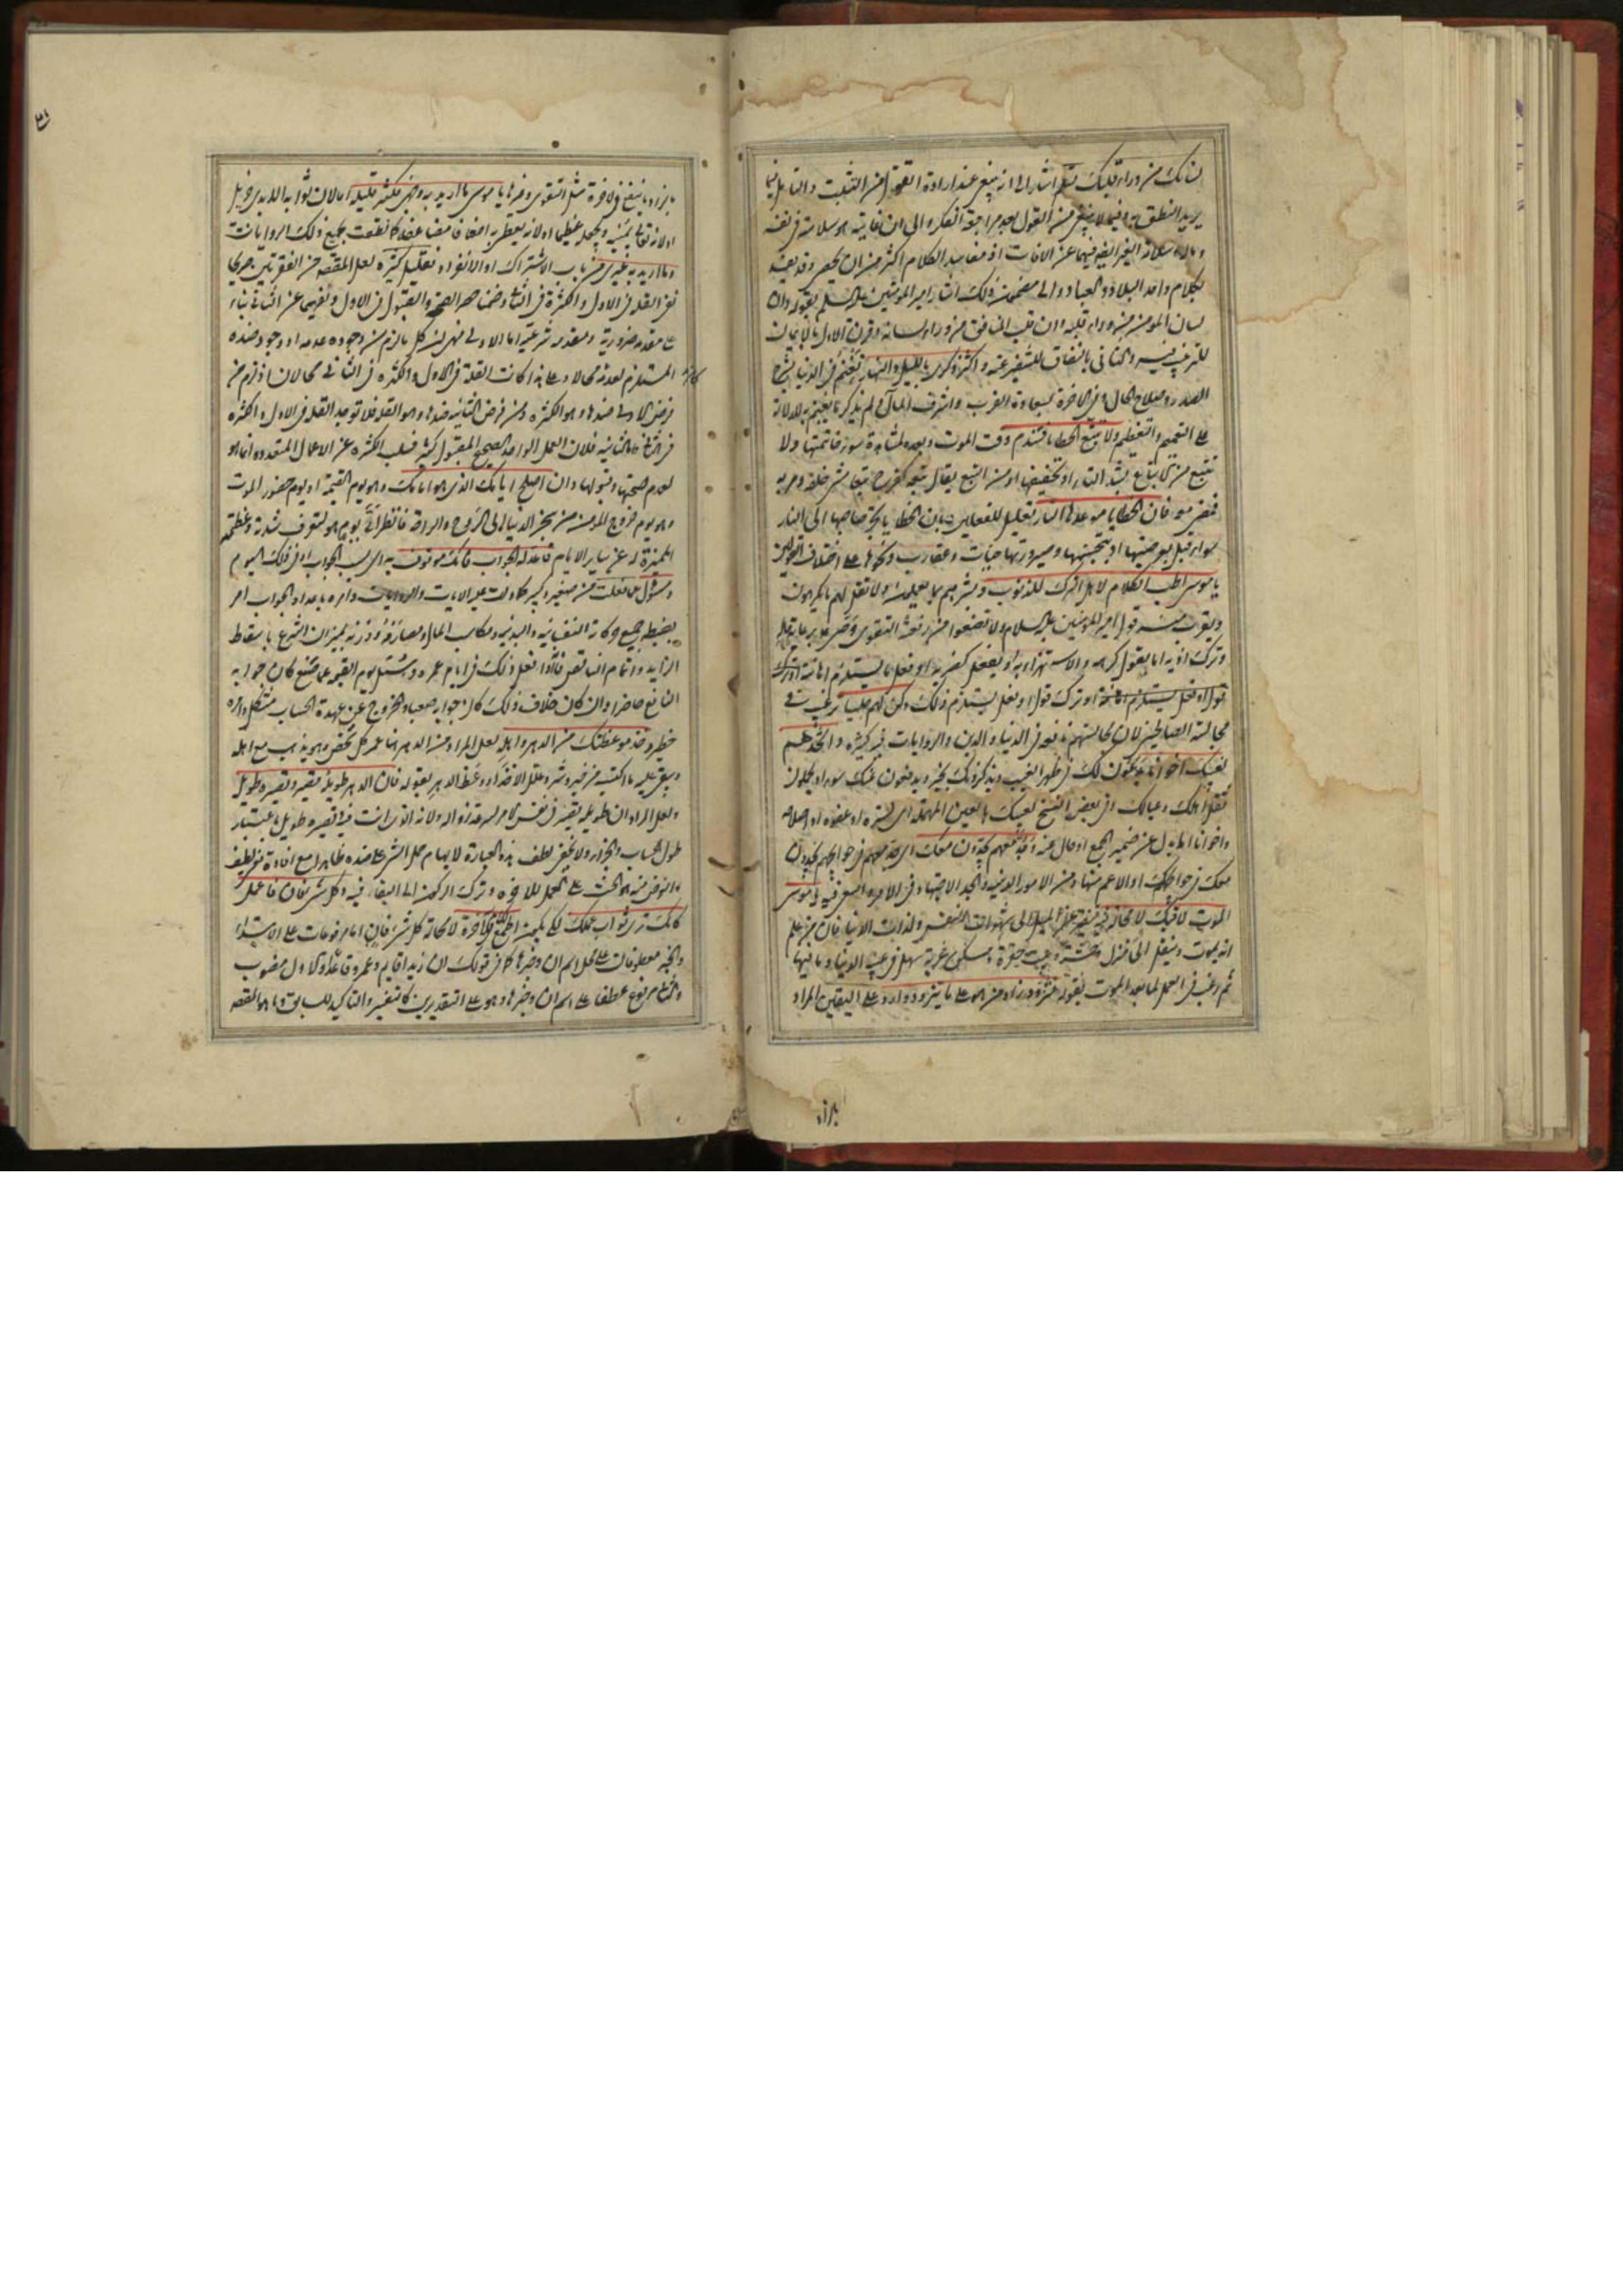 لسانك من وراء قلبك تسلم اشار الى انه ينبغي عند ارادة القول من التثبت والتامل فيما
يريد النطق به وفيما لا ينبغي من القول بعد مراجعة الفكر والى ان غايته هو سلامته في نفسه
وماله وسلامة الغير ايضا فيهما عن الافات اذ مفاسد الكلام اكثر من ان يحصى وقد يفسد
بكلام واحد البلاد والعباد والى مضمون ذلك اشار امير المؤمنين عليه السلم بقوله وان
لسان المؤمن من وراء قلبه وان قلب المنافق من وراء لسانه وقرن الاول بالايمان
للترغيب فيه والثاني بالنفاق للتنفير عنه واكثر ذكري بالليل والنهار تغنم في الدنيا بشرح
الصدر وصلاح الحال وفي الاخرة بسعادة القرب وشرف المآل ولم يذكر ما يغنم به للدلالة
على التعميم والتعظيم ولا تتبع الخطايا فتندم وقت الموت وبعده لمشاهدة سوء خاتمتها ولا
تتبع من الاتباع بشد التاء او تخفيفها او من التبع يقال تبعه كفرح تبعا مشى خلفه ومر به
فمضى معه فان الخطايا موعدها النار تعليل للفعلين بان الخطايا تجر صاحبها الى النار
سواء قيل بعرضيتها او بتجسمها وصيرورتها حيات وعقارب ونحوها على اختلاف القولين
يا موسى اطب الكلام لاهل الترك للذنوب وبشرهم بما يعملون ولا تقل لهم ما يكرهون
ويقرب منه قول امير المؤمنين عليه السلام ولا تضعوا من رفعته التقوى
وترك اذيه اما بقول كريه والاستهزاء به او بفعل كضربه او فعل ما يستلزم اهانته او ترك
قول او فعل يستلزم او ترك قول او فعل يستلزم ذلك وكن لهم جليسا رغب في
مجالسة الصالحين لان مجالستهم نافعة في الدنيا والدين والروايات فيه كثيرة واتخذهم
لغيبك اخوانا يكونون لك في ظهر الغيب ويذكرونك بخير ويدفعون عنك سوء او يحملون
ثقل اهلك وعيالك وفي بعض النسخ لعيبك بالعين المهملة اي لستره او عفوه او اصلاحه
واخوانا بدل عن ضمير الجمع او حال عنه وجد معهم يجدون معك اي جد معهم في حوائجهم يجدون
معك في حوائجك او الاعم منها ومن الامور الدينية والجد الاجتهاد في الامر والسعي فيه يا موسى
الموت لاقيك لا محالة فيه تنفير عن الميل الى شهوات النفس ولذات الدنيا فان من علم
انه يموت وينتقل الى منزل وحشة وبيت حفرة ومسكن غربة سهل في عينه الدنيا وما فيها
ثم رغب في العمل لما بعد الموت بقوله فتزود زاد من هو على ما يتزود وارد على اليقين المراد
بالزاد
٣١
بالزاد ما ينفع في الاخرة مثل التقوى وغيرها يا موسى ما اريد به وجهي فكثير قليله اما لان ثوابه ابدي جزيل
او لانه تعالى ينميه ويجعله عظيما او لانه يعطي به اضعافا مضاعفة كما نطقت بجميع ذلك الروايات
وما اريد به غيري من باب الاشتراك او الانفراد فقليل كثيره لعل المقصد من الفقرتين صريحا
نفي القلة في الاول والكثرة في الثاني وضمنا حصر الصحة والقبول في الاول ونفيهما عن الثاني بناء
على مقدمة ضرورية ومقدمة شرعية اما الاولى فهي ان كل ما لزم من وجوده عدمه او وجود ضده
المستلزم لعدمه محال وعلى هذا كانت القلة في الاول والكثرة في الثاني محالان اذ لزم من
كانت
فرض الاولى ضدها وهو الكثرة ومن فرض الثانية ضدها وهو القلة فلا توجد القلة في الاول والكثرة
في الثاني واما الثانية فلان العمل الواحد الصحيح المقبول كثير فسلب الكثرة عن الاعمال المتعددة انما هو
لعدم صحتها وقبولها وان اصلح ايامك الذي هو امامك وهو يوم القيمة او يوم حضور الموت
وهو يوم خروج المؤمن من سجن الدنيا الى الروح والراحة فانظر اي يوم هو لتعرف شدته وعظمته
المميزة له عن ساير الايام فاعد له الجواب فانك موقوف به اي بسبب الجواب او في ذلك اليوم
ومسئول عما فعلت من صغير وكبير كما دلت عليه الايات والروايات وامره باعداد الجواب امر
بضبط جميع حركاته النفسانية والبدنية ومكاسب المال ومصارفه ووزنه بميزان الشرع باسقاط
الزايد واتمام الناقص فانه اذا فعل ذلك في ايام عمره وسئل يوم القيمة عما صنع كان جوابه
النافع حاضرا وان كان خلاف ذلك كان جوابه صعبا والخروج عن عهدة الحساب مشكلا وامره
خطير وخذ موعظتك من الدهر واهله لعل المراد من الدهر هنا عمر كل شخص وهو يذهب مع اهله
ويبقى عليه ما اكتسبه من خير وشر وعلل الاخذ او وعظ الدهر بقوله فان الدهر طويله قصير وقصيره طويل
ولعل المراد ان طويله قصير في نفس الامر لسرعة زواله ولانه ان فات فيه وقصيره طويل باعتبار
طول الحساب والجزاء ولا يخفى لطف هذه العبارة لايهام حمل الشيء على ضده ظاهرا مع افادة معنى لطيف
والغرض منه هو الحث على العمل للاخرة وترك الركون الى البقاء فيه وكل شيء فان فاعمل
كانك ترى ثواب عملك لكي يكون اطمع لك في الاخرة لا محالة كل شيء فان اما مرفوعات على الابتداء
والخبر معطوفان على محل اسم ان وخبرها كما في قولك ان زيدا قايم وعمرو قاعد او الاول منصوب
والثاني مرفوع عطفا على اسم ان وخبرها وهو على التقديرين كالتفسير والتاكيد للسابق وما هو المقصد